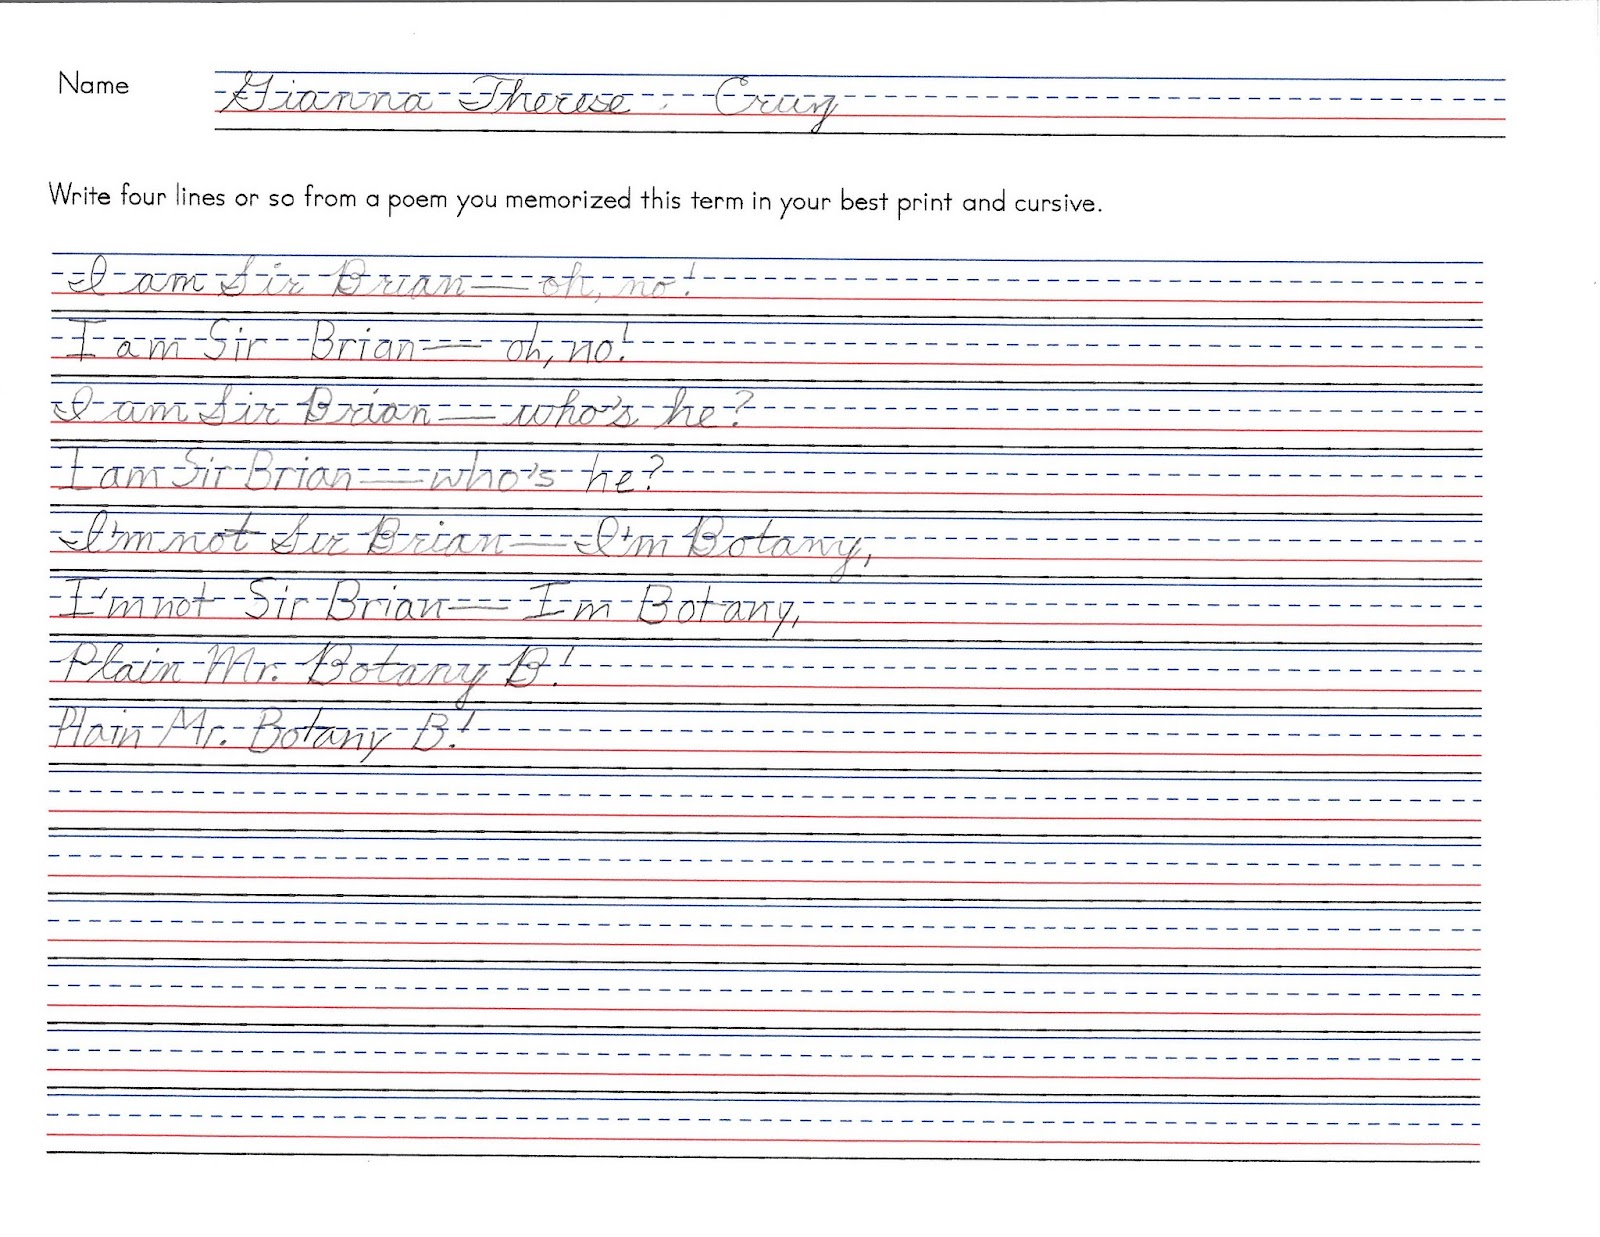 Name Gianna Therese Cruz
Write four lines or so from a poem you memorized this term in your best print and cursive.
I am Sir Brian—oh, no!
I am Sir Brian— oh, no!
I am Sir Brian—who's he?
I am Sir Brian—who's he?
I'm not Sir Brian—I'm Botany,
I'm not Sir Brian— Im Botany,
Plain Mr. Botany B!
Plain Mr. Botany B!